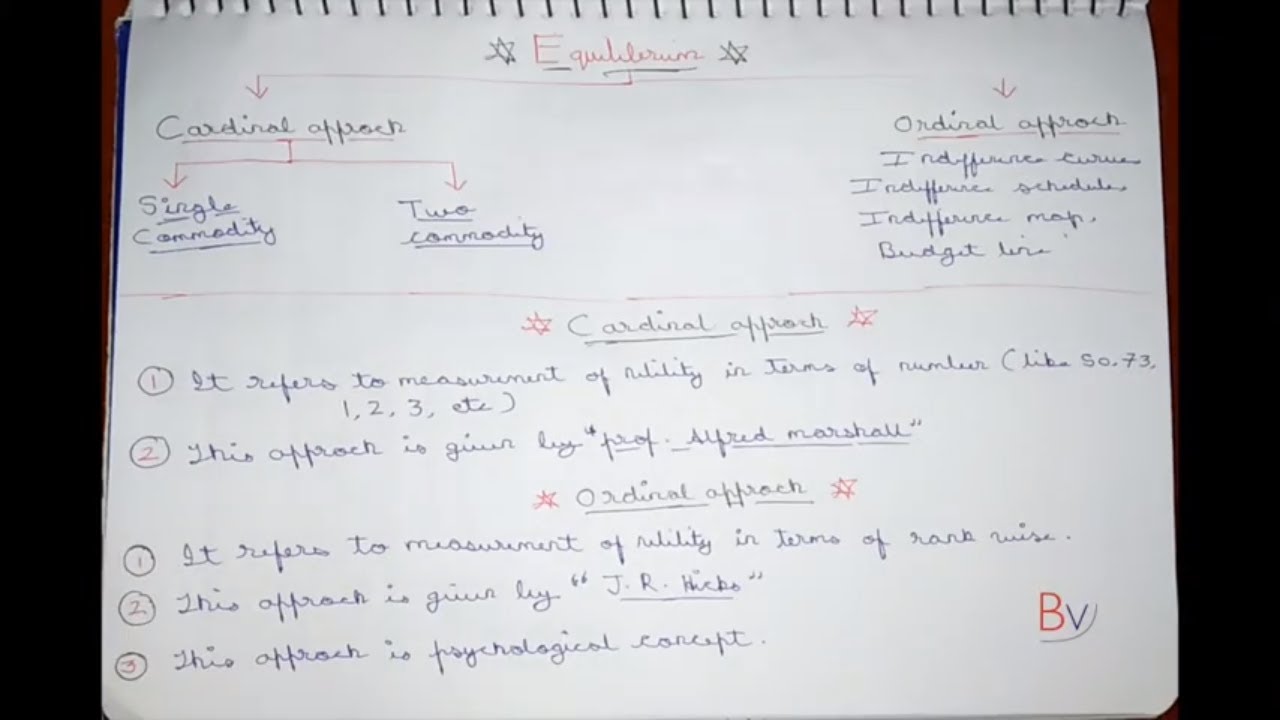 Equilibrium
Cardinal approch
Ordinal approch
Single
Commodity
Two
commodity
Indifference curve
Indifference schedule,
Indifference map,
Budget line
Cardinal approch
① It refers to measurement of utility in terms of number (like 50, 73,
1, 2, 3, etc)
② This approch is given by "prof. Alfred marshall"
Ordinal approch
① It refers to measurement of utility in terms of rank wise.
② This approch is given by "J. R. Hicks"
③ This approch is psychological concept.
BV